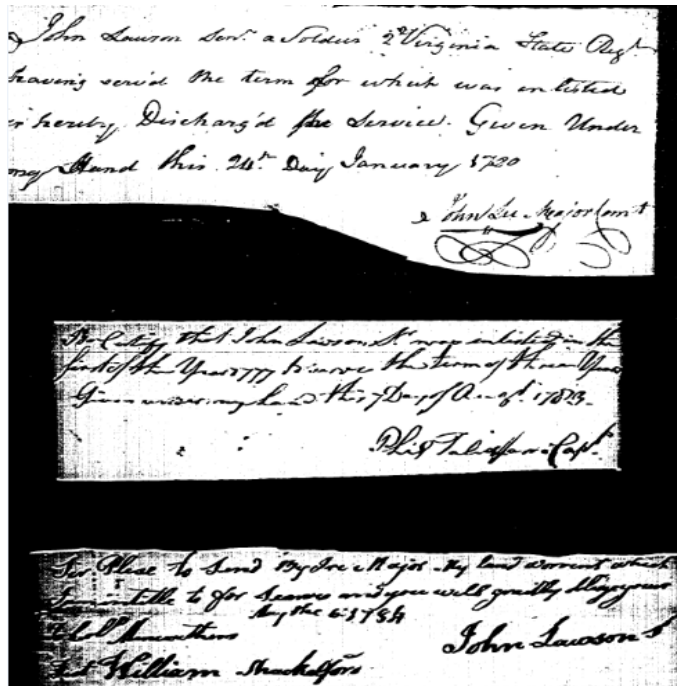 John Lawson Senr. a Soldier 2d Virginia State Regt
having serv'd the term for which was enlisted
is hereby Discharg'd the Service. Given Under
my Hand this 24th Day January 1780
John Lee Major Comt
that John Lawson Sr was enlisted in the
first of the Year 1777 to serve the term of three Years
Given under my hand this 7 Day of Augt. 1783.
Phil Taliaferro Capt.
Ser Please to Send By Major My land warrent which
I am intitle to for Sarvice and you will greatly oblige your
May the 6 1784
John Lawson S
Test William Shackelford